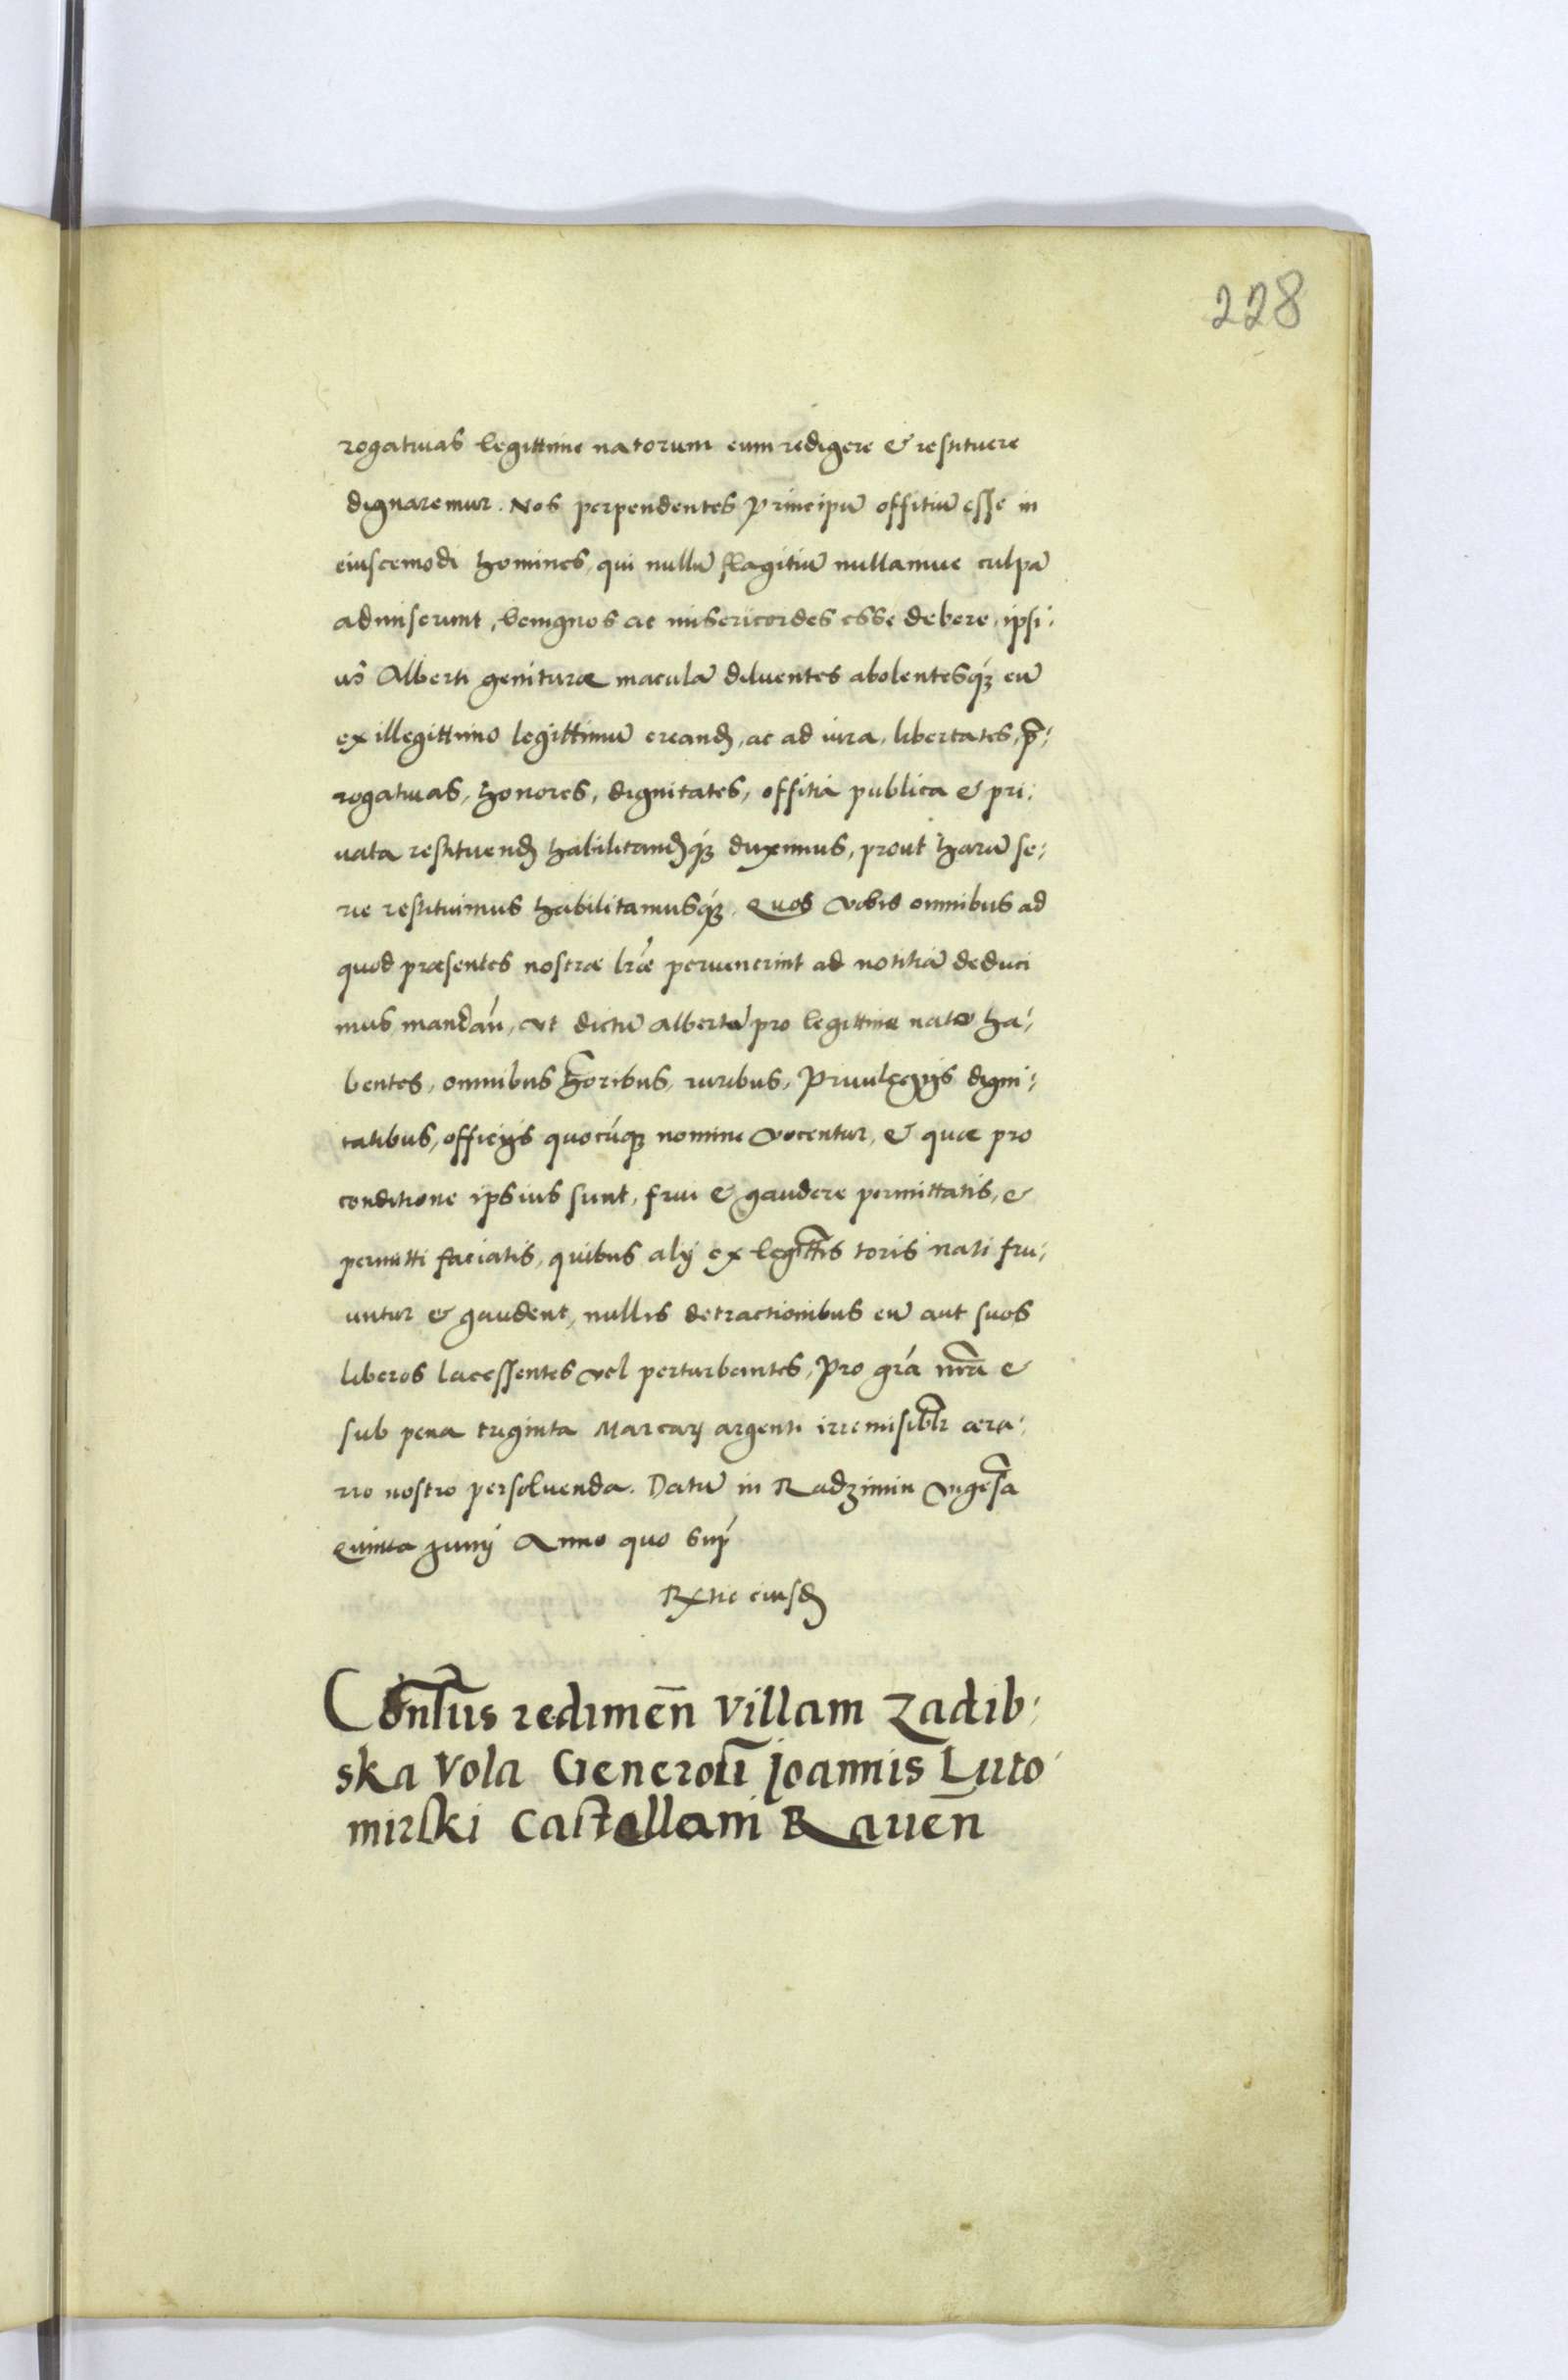 228
rogatiuas legittime natorum eum redigere & restituere
dignaremur. Nos perpendentes Principū offitiū esse in
eiuscemodi homines, qui nullū flagitiū nullamue culpā
admiserunt, benignos ac misericordes esse debere, ipsi:
us Alberti geniturae maculā diluentes abolentesq́ꝫ eū
ex illegittimo legittimū creand̄, ac ad iura, libertates, p̄:
rogatiuas, honores, dignitates, offitia publica & pri:
uata restituend̄ habilitand̄q́ꝫ duximus, prout harū se:
rie restituimus habilitamusq́ꝫ. Quos vobis omnibus ad
quod praesentes nostrae lr̄ae peruenerint ad notitiā deduci
mus, mandan̄, vt dictū albertū pro legittime nato ha:
bentes, omnibus hōribus, iuribus, Priuilegijs digni:
tatibus, officijs quocūqꝫ nomine vocentur, & quae pro
conditione ipsius sunt, frui & gaudere permittatis, &
permitti faciatis, quibus alij ex legitt̄is toris nati fru:
untur & gaudent, nullis detractionibus eū aut suos
liberos lacessentes vel perturbantes, Pro gr̄a nr̄a &
sub pena triginta Marcarꝝ argenti irremisibl̄r aera:
rio nostro persoluenda. Datū in Radzimin viges̄a
Quinta Junij Anno quo sup̄
Rx̄tie eiusd̄
Con̄sus redimen̄ villam Zadib:
ska Vola Generosi Joannis Luto
mirski Castellani Rauen̄